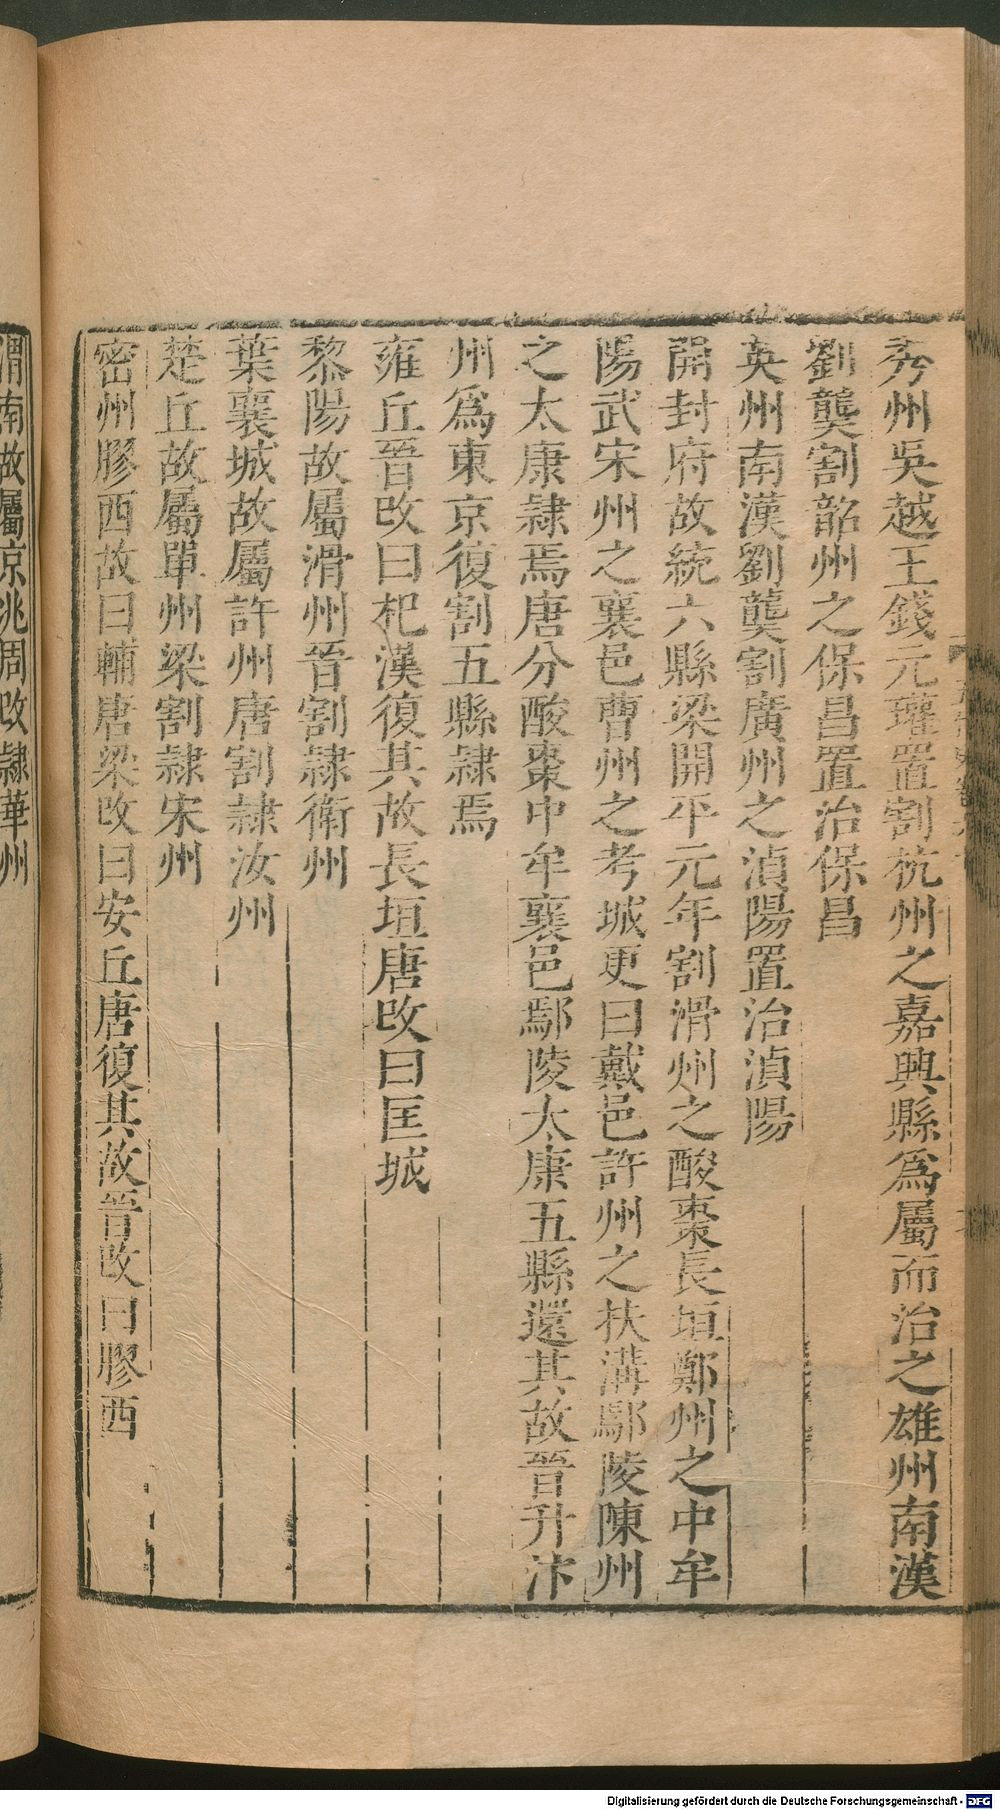 秀州吳越王錢元瓘置割杭州之嘉興縣爲屬而治之雄州南漢
劉龑割韶州之保昌置治保昌
英州南漢劉龑割廣州之湞陽置治湞陽
開封府故統六縣梁開平元年割滑州之酸棗長垣鄭州之中牟
陽武宋州之襄邑曹州之考城更曰戴邑許州之扶溝鄢陵陳州
之太康隷焉唐分酸棗中牟襄邑鄢陵太康五縣還其故晉升汴
州爲東京復割五縣隷焉
雍丘晉改曰杞漢復其故長垣唐改曰匡城
黎陽故屬滑州晉割隷衛州
葉襄城故屬許州唐割隷汝州
楚丘故屬單州梁割隷宋州
密州膠西故曰輔唐梁改曰安丘唐復其故晉改曰膠西
渭南故屬京兆周改隷華州
Digitalisierung gefördert durch die Deutsche Forschungsgemeinschaft - DFG